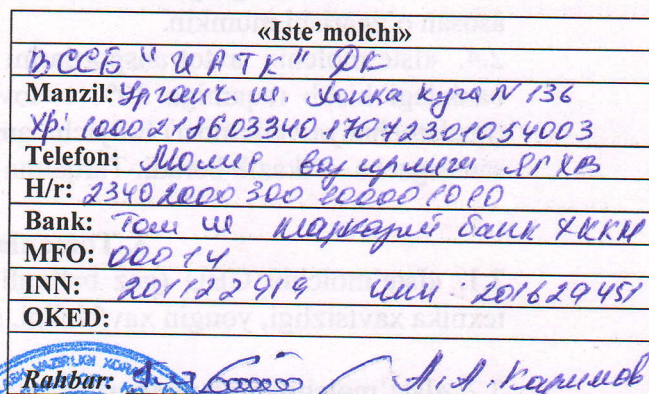 «Iste’molchi»
ВССБ "ИАТК" ФК
Manzil: Урганч ш. Хонка куча N 136
Хр: 100021860334017072301054003
Telefon: Молия вазирлиги ЯГХВ
H/r: 23402000300100001010
Bank: Тош ш Марказий банк ХККМ
MFO: 00014
INN: 201122919 ИНН: 201629451
OKED:
Rahbar: А.А. Каримов